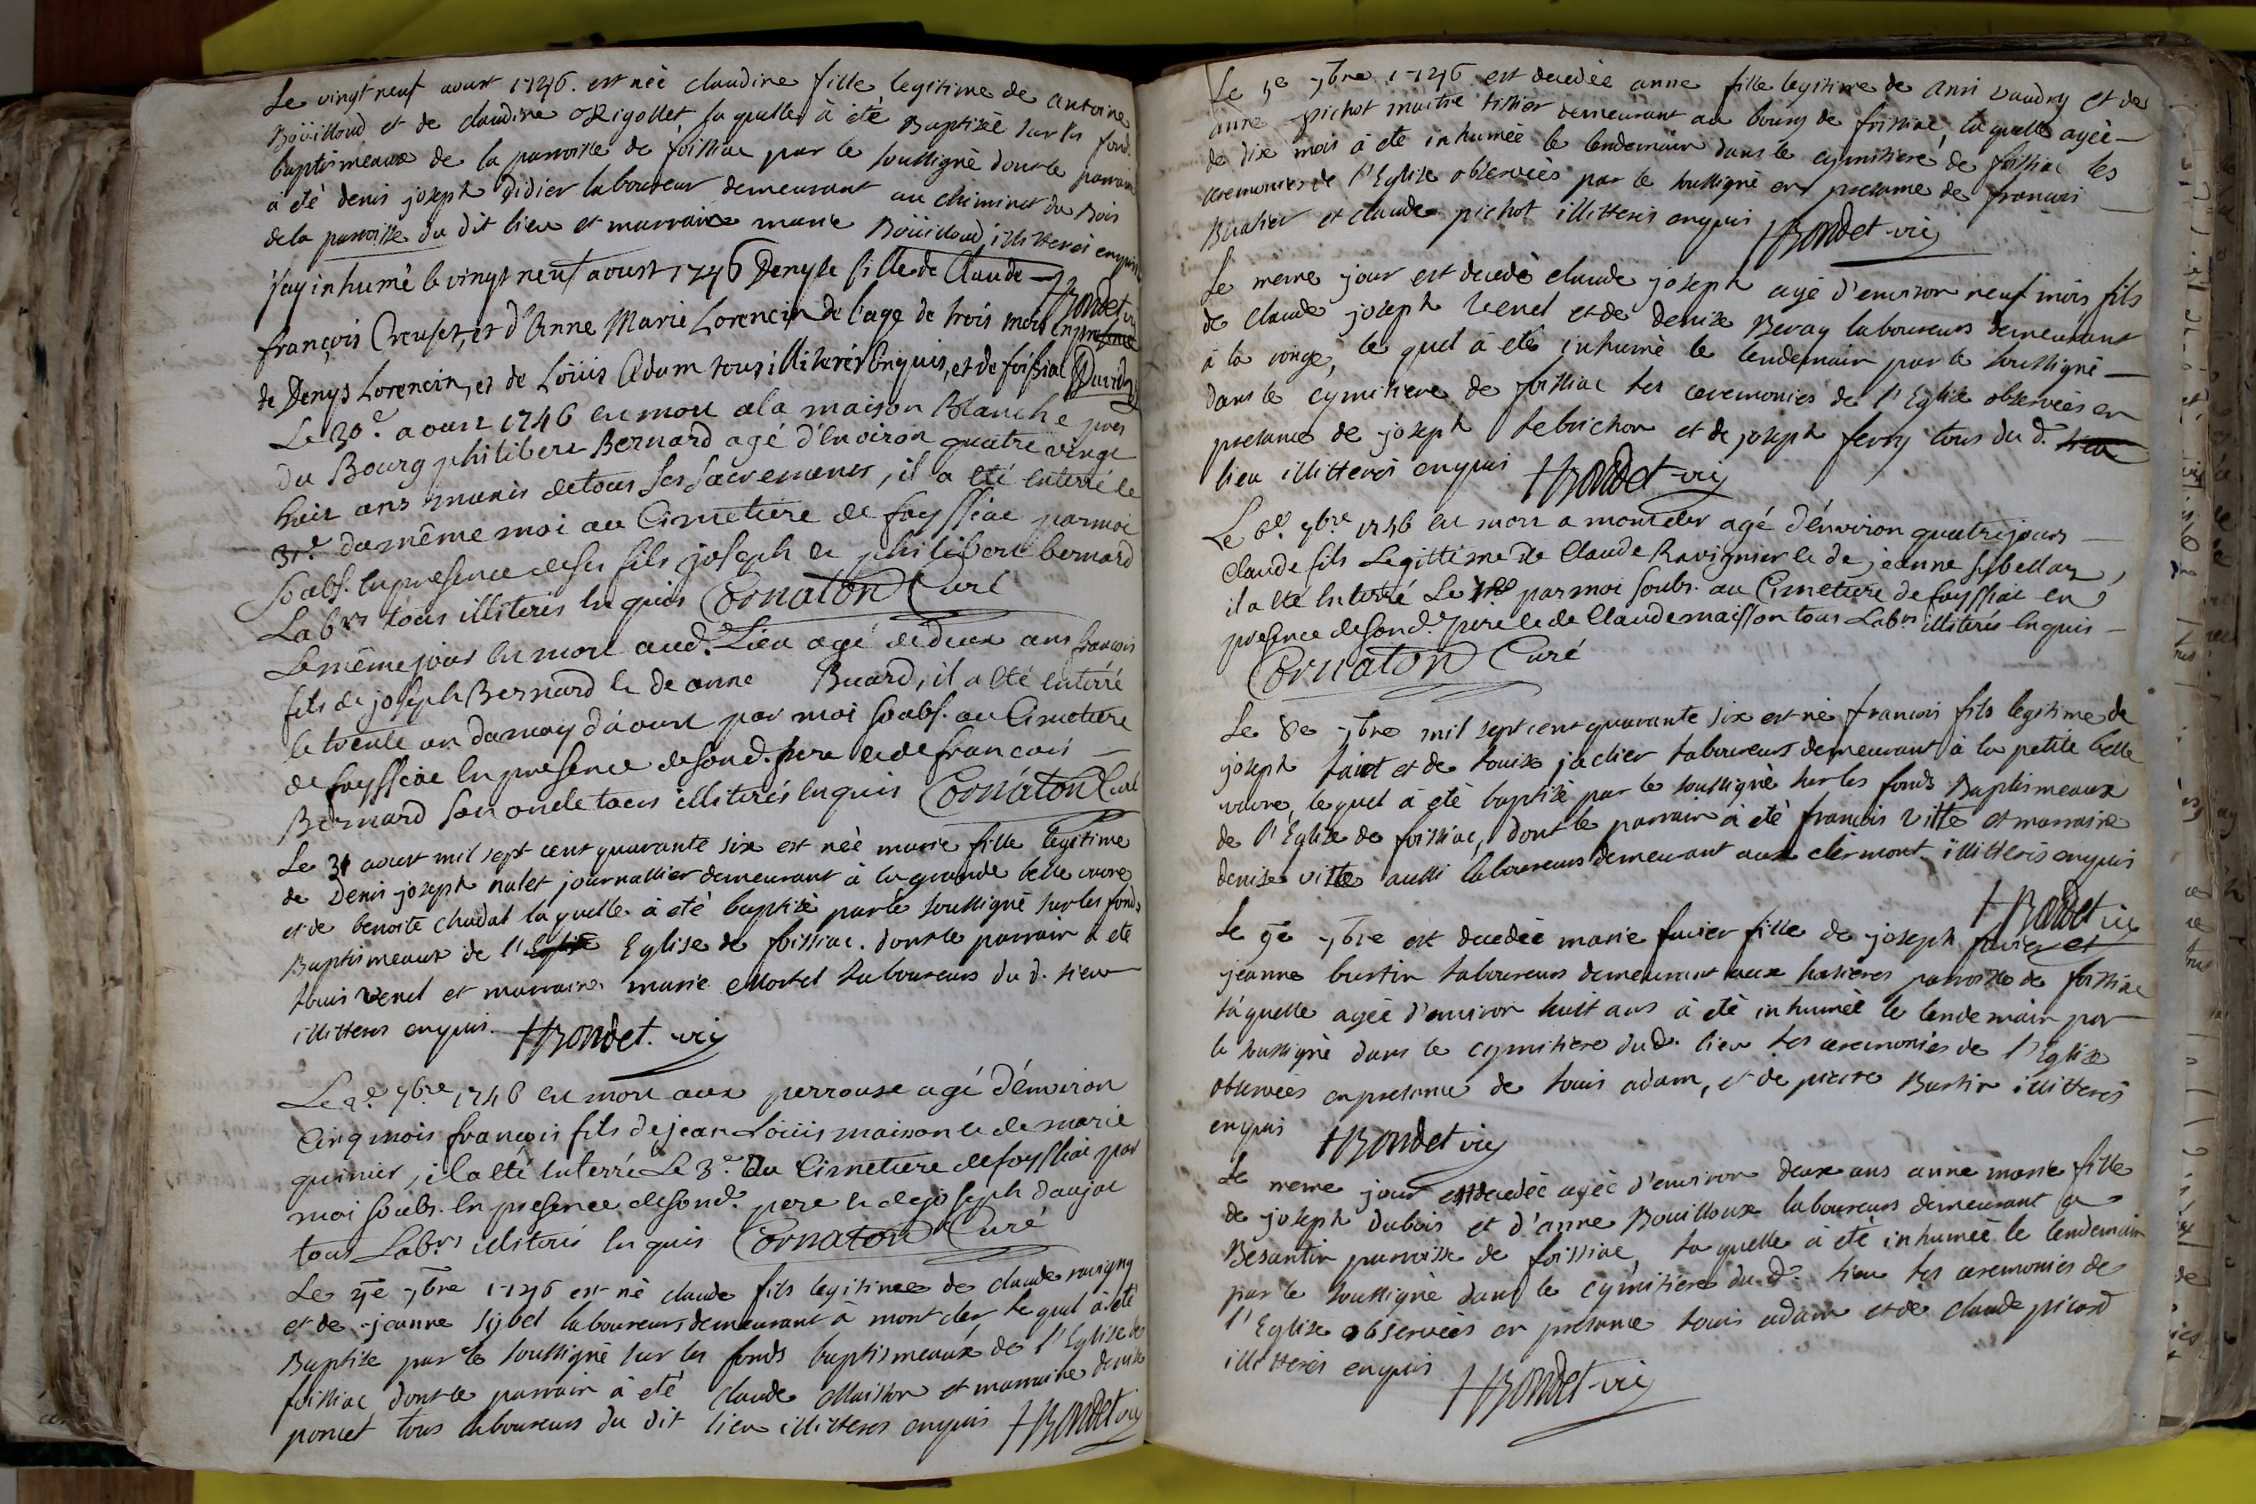 Le vingt neuf aoust 1746. est neè claudine fille legitime de antoine
Boüilloud et de claudine Rigollet laquelle à étè Baptizèe sur les fond.
baptismeaux de la parroisse de foissiac par le soussignè dont le parrain
à étè denis joseph Didier laboureur demeurant au cheminet du Bois
de la parroisse du dit lieu et marraine marie Boüilloud illitterès enquis
HBondet vic
j'ay inhumé le vingt neuf aoust 1746 Denyse fille de Claude
françois Creuset, et d'Anne Marie Lorencin de l'age de trois mois en presence
de Denys Lorencin, et de Loüis Adam tous illiterés enquis, et de foissiac
Le 30e. aoust 1746 est mort a la maison Blanche pres
du Bourg philibert Bernard agé d'environ quatre vingt
huit ans munis de tous ses sacrements, il a eté enterré le
31e. du même moi au Cimetiere de foyssiac par moi
soubs. en presence de ses fils joseph et philibert bernard
Labrs tous illiterés enquis Cornaton Curé
Le même jour est mort aud. Lieu agé de deux ans françois
fils de joseph Bernard et de anne Buard, il a eté enterré
le trente un du moy d'aoust par moi soubs. au Cimetiere
de foyssiac en presence de sond. pere et de francois
Bernard son oncle tous illiterés enquis Cornaton Curé
Le 31 aoust mil sept cent quarante six est nèè marie fille legitime
de Denis joseph nalet journallier demeurant à la grande belle vavre
et de benoite chudal laquelle à étè baptizè par le soussignè sur les fonds
Baptismeaux de l'Eglise Eglise de foissiac. dont le parrain à etè
Louis Venel et marraine marie Mortel laboureurs du d. lieu
illitterès enquis. HBondet. vic
Le 2e. 7bre 1746 est mort aux perrouse agé d'environ
Cinq mois françois fils de jean Loüis maison et de marie
quinier, il a eté enterré Le 3e. au Cimetiere de foyssiac par
moi soubs. en presence de sond. pere et de joseph daujat
tous Labrs illiterés enquis Cornaton Curé
Le 5e 7bre 1746 est nè claude fils legitime de claude ravigny
et de jeanne sibel laboureurs demeurant à mont cler le quel à étè
Baptize par le soussignè sur les fonds baptismeaux de l'Eglise de
foissiac dont le parrain à etè claude Maisson et marraine denise
poncet tous laboureurs du dit lieu illitterès enquis HBondet vic
Le 5e 7bre 1746 est decedèe anne fille legitime de anri vaudry et de
anne pichot maitre tissier demeurant au bourg de foissiac, la quelle agèe
de dix mois à etè inhumèe le lendemain dans le cymitiere de foissiac les
ceremonies de l'Eglise observèes par le soussignè en presance de francois
et claude pichot illitterès enquis HBondet vic
Le meme jour est decedè claude joseph agè d'environ neuf mois, fils
de claude joseph Venel et de denize Beray laboureurs demeurant
à la ronge, le quel à etè inhumè le lendemain par le soussignè
dans le cymitiere de foissiac les ceremonies de l'Eglise observèes en
presance de joseph Lebrichon et de joseph ferry tous du d. lieu
lieu illitterès enquis HBondet vic
Le 6e. 7bre 1746 est mort a montcler agé d'environ quatre jours
Claude fils Legittime de Claude Ravignier et de jeanne Sybellas,
il a eté enterré Le par moi soubs. au Cimetiere de foyssiac en
presence de sond. pere et de Claude maisson tous Labrs illiterés enquis
Cornaton Curé
Le 8e 7bre mil sept cent quarante six est nè francois fils legitime de
joseph et de Louize jaclier laboureurs demeurant à la petite belle
vavre, lequel à etè baptizè par le soussignè sur les fonds Baptismeaux
de l'Eglize de foissiac, dont le parrain à etè francois Vitte et marraine
denize vitte aussi laboureurs demeurant aux clermont illitterès enquis
HBondet vic
Le 9e 7bre est decedèe marie favier fille de joseph favier et
jeanne burtin laboureurs demeurant aux parroisse de foissiac
laquelle agèe d'environ huit ans à etè inhumèe le lendemain par
le soussignè dans le cymitiere du d. lieu les ceremonies de l'Eglize
observees en presance de Louis adam, et de pierre Burtin illitterès
enquis HBondet vic
Le meme jour est decedèe agèe d'environ deux ans anne marie fille
de joseph dubois et d'anne Bouilloux laboureurs demeurant a
Besantin parroisse de foissiac, la quelle à etè inhumèe le lendemain
par le soussignè dans le cymitiere du d. lieu les ceremonies de
l'Eglize observèes en presance Louis adam et de claude picard
illitterès enquis HBondet vic